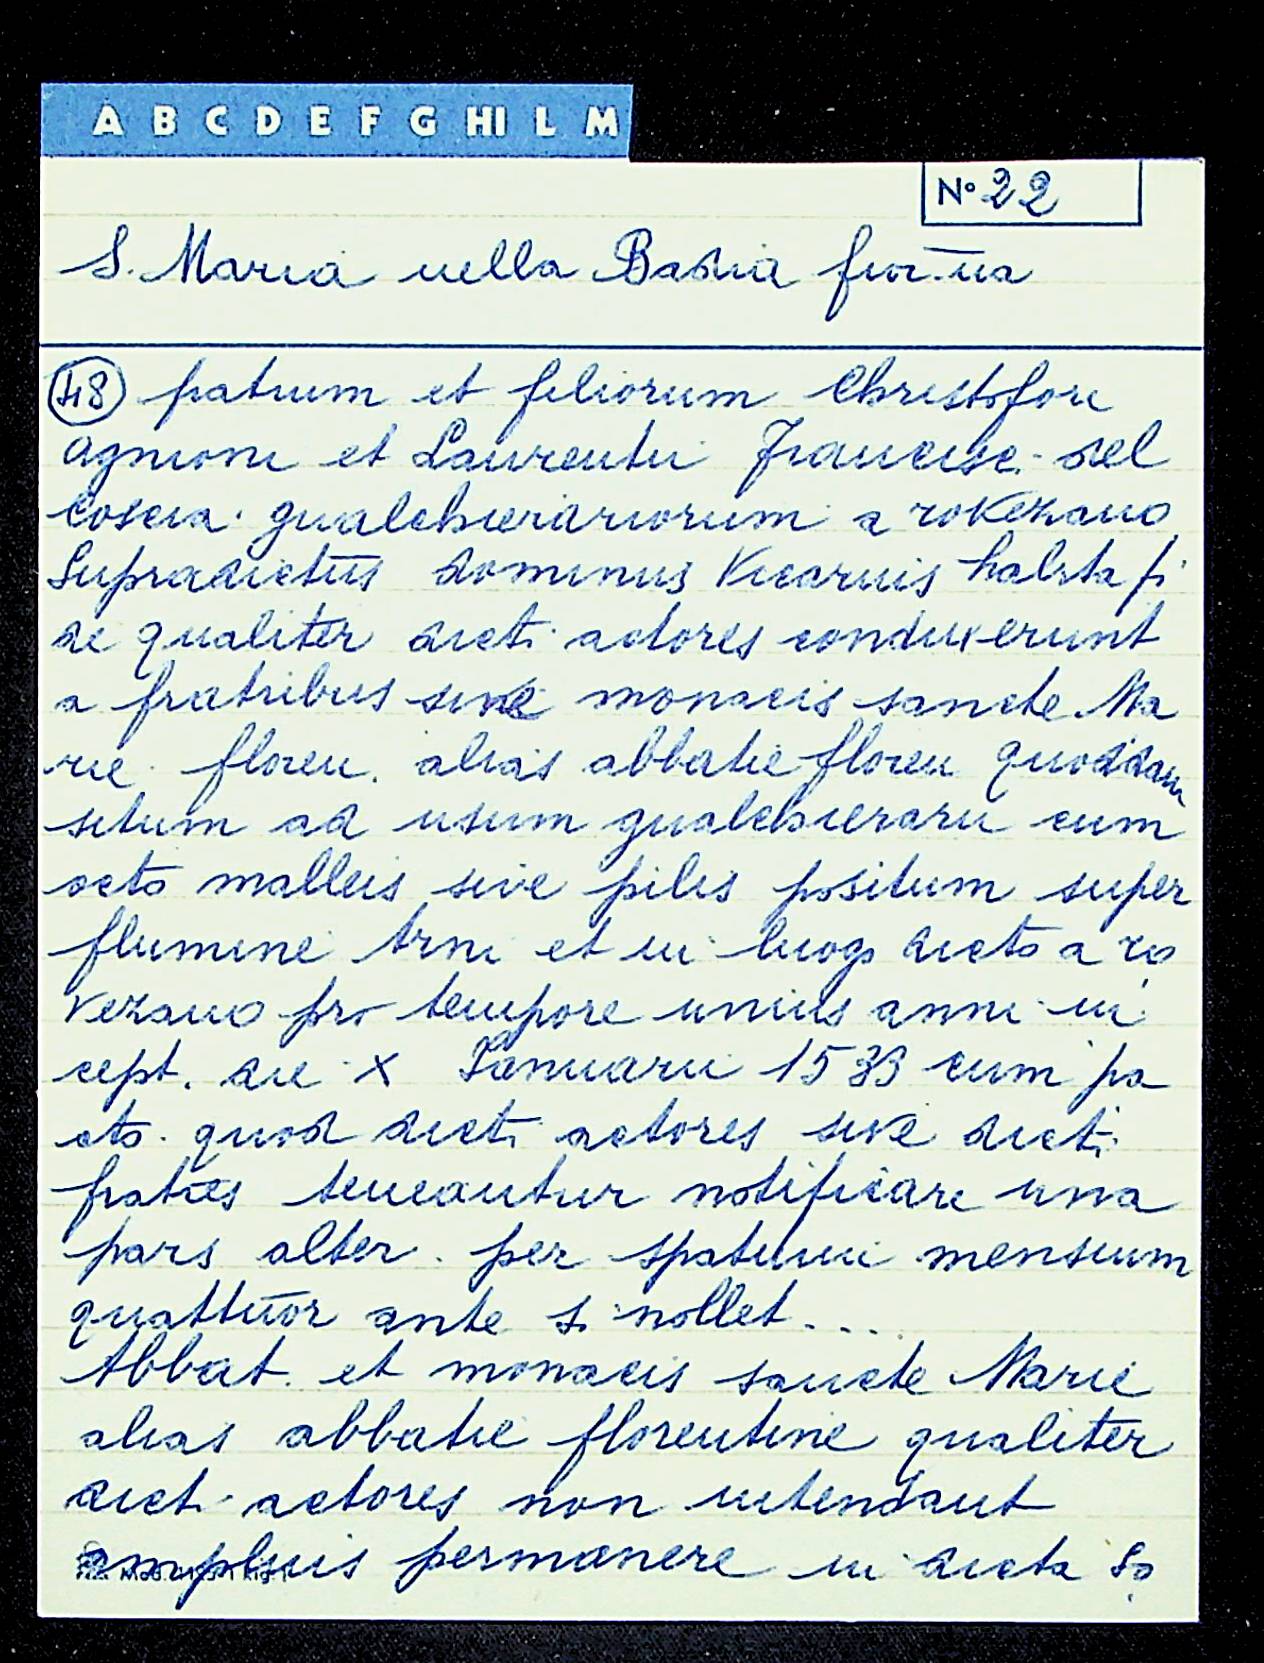 A B C D E F G HI L M
N° 22
S. Maria nella Badia fior.na
48 fratrum et filiorum Christofori
Agnioni et Laurentii Francisc. del
Coscia. gualchierariorum a rovezano
Supradictus dominus Vicarius habita fi
de qualiter dicti actores conduxerunt
a fratribus sive monacis sancte Ma
rie floren. alias abbatie floren quoddam
situm ad usum gualchierarii cum
octo malleis sive pilis positum super
flumine Arni et in luogo dicto a ro
vezano pro tempore unius anni in
cept. die X Januarii 1533 cum pa
cto. quod dicti actores sive dicti
fratres teneantur notificare una
pars alter. per spatium mensium
quattuor ante si nollet....
Abbat. et monacis sancte Marie
alias abbatie florentine qualiter
dict. actores non intendant
amplius permanere in dicta So